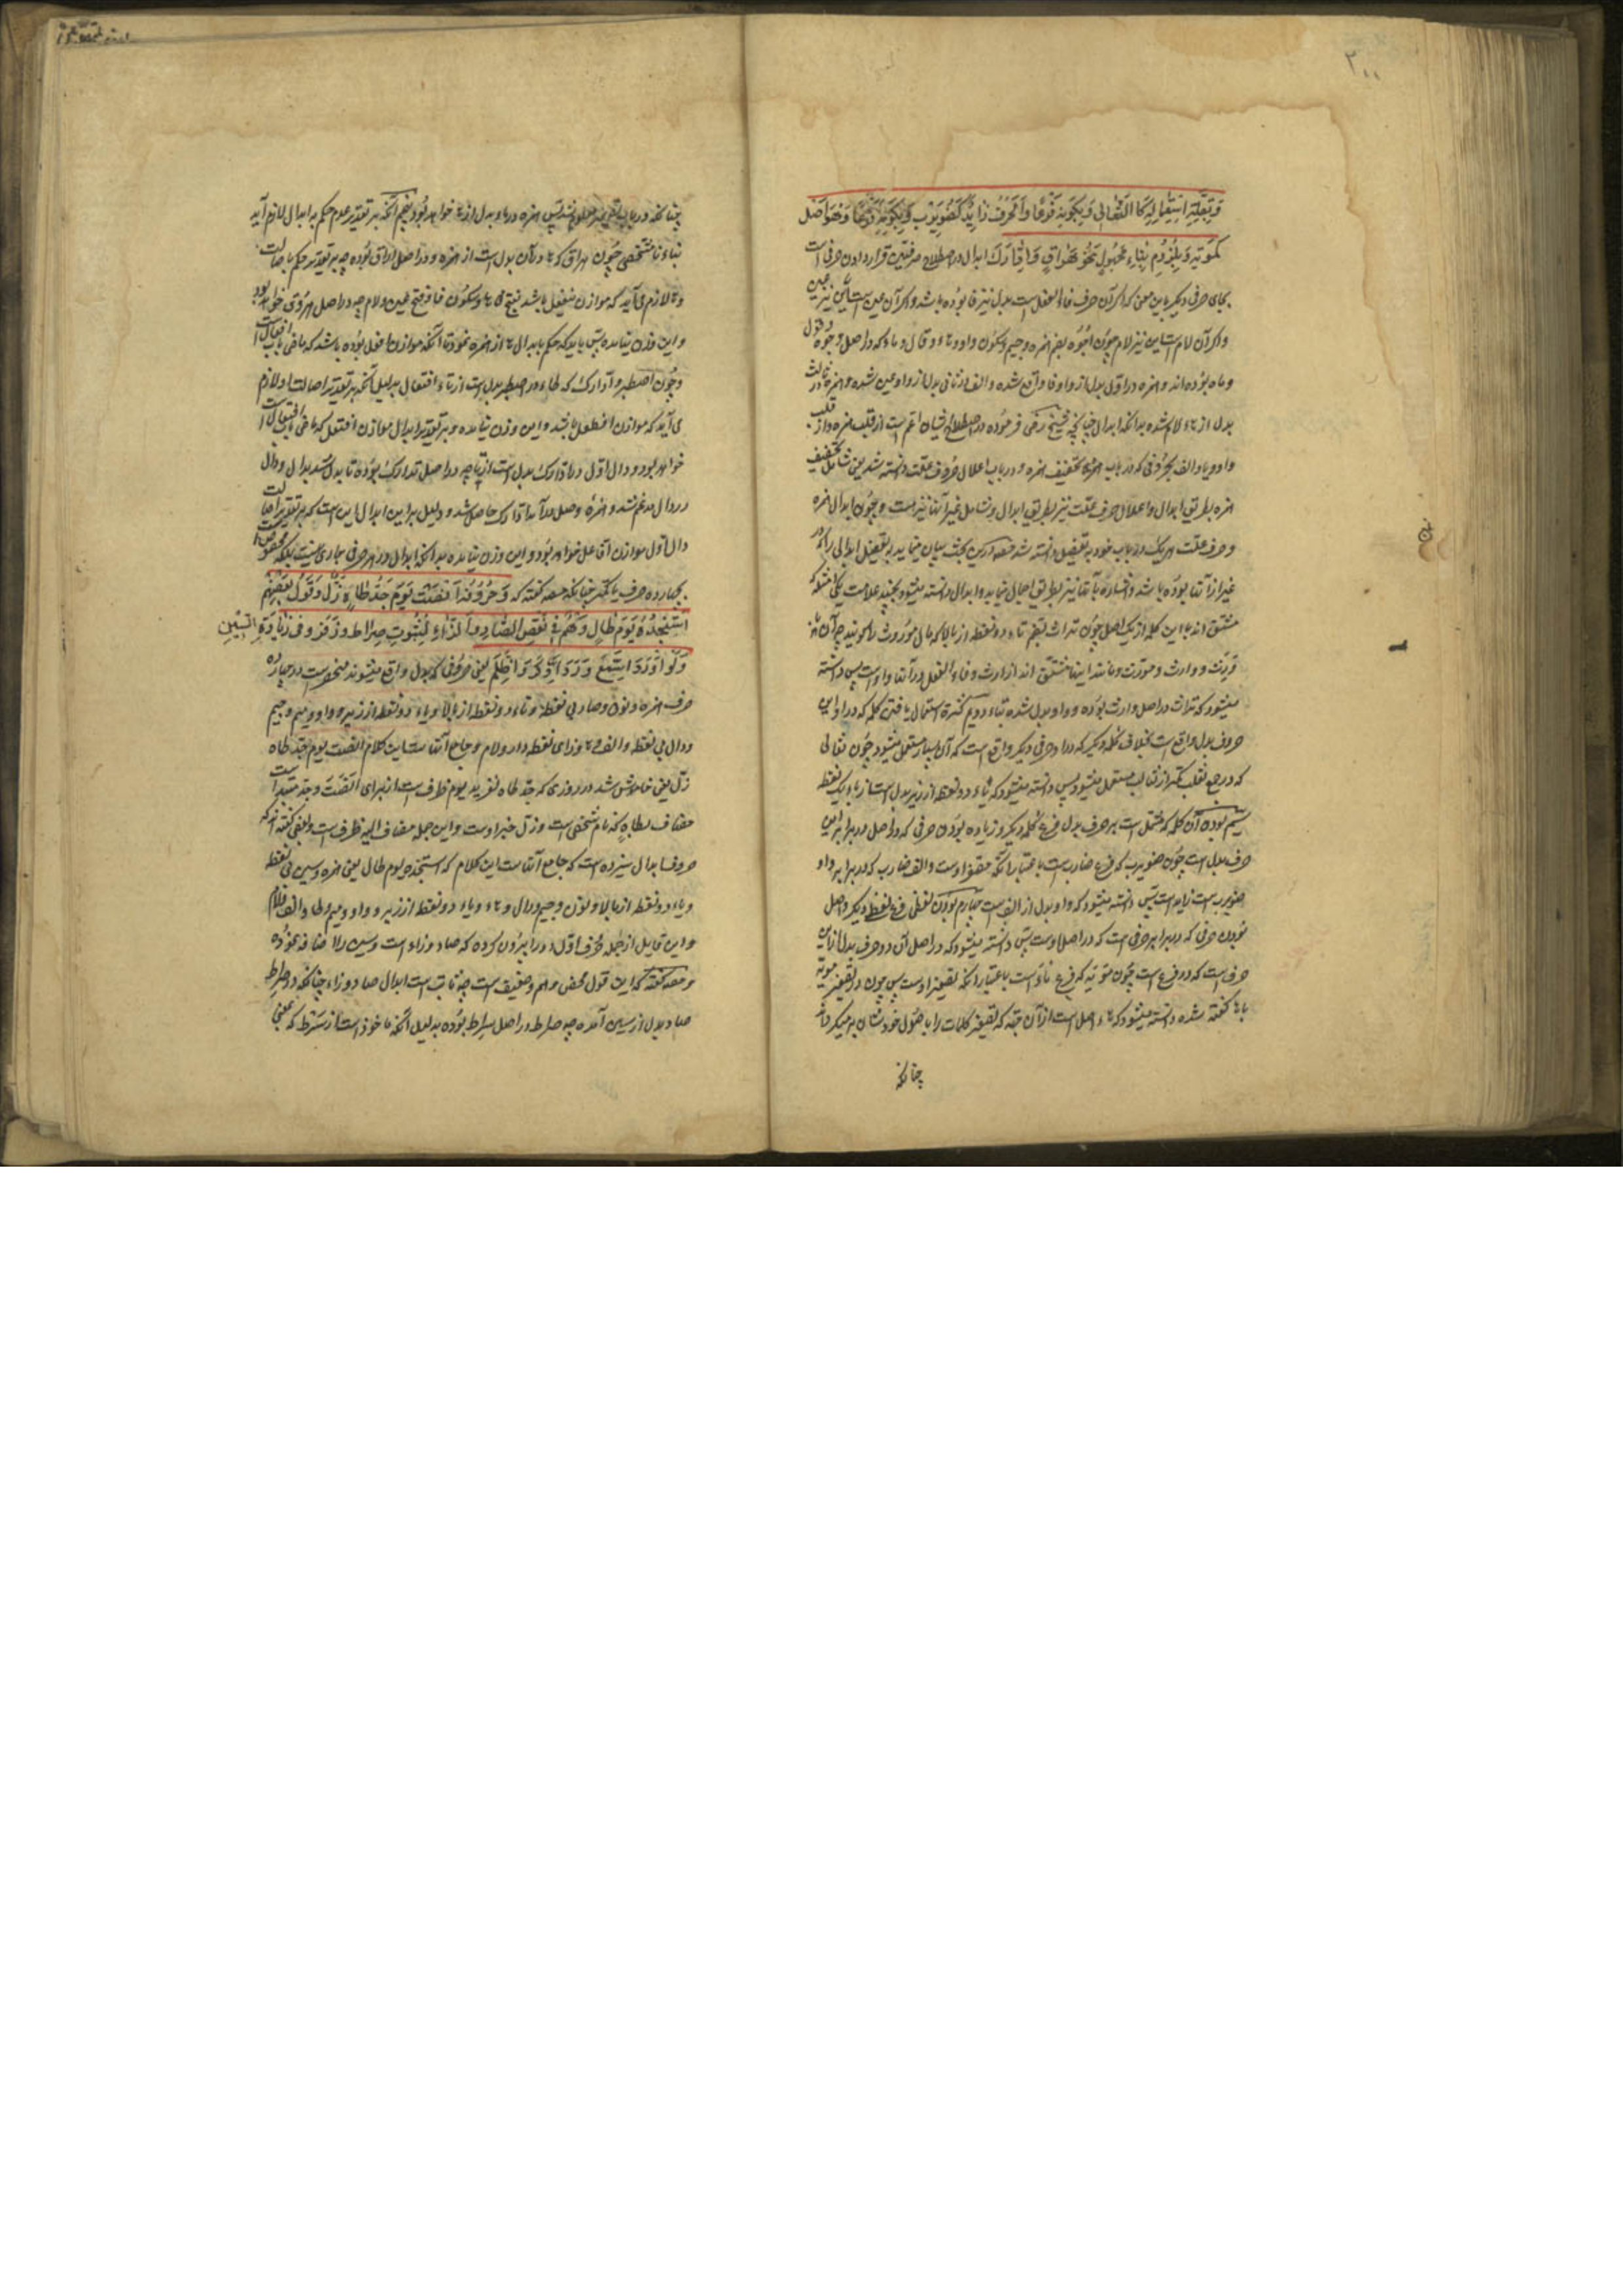 ۲۰۰
وَبِقِلَّةِ اسْتِعْمَالِهِ كَالثَّعَالِی وَبِكَوْنِهِ فَرْعًا وَالْحَرْفُ زَائِدٌ كَضُوَيْرِبٍ وَبِكَوْنِهِ فَرْعًا وَهُوَ اَصْلٌ
كَمُوَيْهٍ وَبِلُزُومِ بِنَاءٍ مَجْهُولٍ نَحْوُ هَرَاقَ وَ ادَّارَكَ ابدال در اصطلاح صرفیین قرار دادن حرفی است
بجای حرفی دیگر باین معنی که اگر آن حرف فاء الفعل است بدل نیز فا بوده باشد و اگر آن عین است این نیز عین
و اگر آن لام است این نیز لام چون اجوه بضم همزه و جیم و سکون واو و هاء و قال و ماء که در اصل وجوه و قول
و ماه بوده اند و همزه در اول بدل از واو فا واقع شده و الف در ثانی بدل از واو عین شده و همزه در ثالث
بدل از هاء لام شده بدانکه ابدال چنانچه شیخ رضی فرموده در اصطلاح ایشان اعم است از قلب همزه و از قلب
واو و یا و الف بحروفی که در باب همزه تخفیف همزه و در باب اعلال حروف علت دانسته شد یعنی شامل تخفیف
همزه بطریق ابدال و اعلال حرف علت نیز بطریق ابدال و شامل غیر آنها نیز هست و چون ابدال همزه
و حرف علت هر یک در باب خود به تفصیل دانسته شد مصه در این بحث بیان مینماید به تفصیل ابدالی را که در
غیر از آنها بوده باشد و اشاره بآنها نیز بطریق اجمال مینماید و ابدال دانسته میشود بچند علامت یکی امثله که
مشتق اند با این کلمه از یک اصل چون تراث بضم تاء دو نقطه از بالا که مال موروث را گویند چه آن
ورث و وارث و مورث و مانند اینها مشتق اند از ارث و فاء الفعل در آنها واو است پس دانسته
میشود که تراث در اصل وراث بوده و واو بدل شده بتاء دویم کثرة استعمال یافتن کلمه که در او این
حروف بدل واقع است بخلاف کلمه دیگر که در او حرفی دیگر واقع است که آن بسیار مستعمل میشود چون ثعالی
که در جمع ثعلب کمتر از ثعالب مستعمل میشود پس دانسته میشود که یاء دو نقطه از زیر بدل است از باء یک نقطه
سیم بودن آن کلمه که مشتمل است بر حرف بدل فرع کلمه دیگر و زیاده بودن حرفی که در اصل در برابر این
حرف بدل است چون ضویرب که فرع ضارب است باعتبار آنکه مصغر اوست و الف ضارب که در برابر واو
ضویرب است زاید است پس دانسته میشود که واو بدل از الف است چهارم بودن لفظی فرع لفظ دیگر و اصل
بودن حرفی که در برابر حرفی است که در اصل اوست پس دانسته میشود که در اصل آن دو حرف بدل از این
حرف است که در فرع است چون مویه که فرع ماء است باعتبار آنکه تصغیر اوست پس چون در تصغیر مویه
با ها گفته شده دانسته میشود که هاء اصل است از آن جهة که تصغیر کلمات را باصول خودشان بر میگرداند
چنانکه
چنانکه در باب تصغیر معلوم شد پس همزه در ماء بدل از ها خواهد بود پنجم آنکه بر تقدیر عدم حکم به ابدال لازم آید
بناء نامشخصی چون هراق که ها در آن بدل است از همزه و در اصل اراق بوده چه بر تقدیر حکم باصالت
ها لازم می آید که موازن هفعل باشد بفتح ها و سکون فا و فتح عین و لام
و این وزن نیامده پس باید که حکم بابدال ها از همزه نمود تا آنکه موازن افعل بوده باشد که ماضی باب افعال است
و چون اصطبر و ادارک که طاء در اصطبر بدل است از تاء افتعال بدلیل آنکه بر تقدیر اصالت او لازم
می آید که موازن افطعل باشد و این وزن نیامده و بر تقدیر ابدال موازن افتعل که ماضی باب افتعال است
خواهد بود و دال اول در ادارک بدل است از تا چه در اصل تدارک بوده تا بدل شد بدال و دال
در دال مدغم شد و همزه وصل در آمد ادارک حاصل شد و دلیل بر این ابدال این است که بر تقدیر اصالت
دال اول موازن افاعل خواهد بود و این وزن نیامده بدانکه ابدال در هر حرفی جاری نیست بلکه مخصوص است
بچهارده حرف یا کمتر چنانکه مصه گفته که وَ حُرُوفُهُ اَنْصَتَ يَوْمَ جَدُّ طَاهٍ زَلَّ وَ قَوْلُ بَعْضِهِمْ
اِسْتَنْجَدَهُ يَوْمَ طَالَ وَهْمٌ فِی نَقْصِ الصَّادِ وَ الزَّاءِ لِثُبُوتِ صِرَاط وَ زَقَر وَ فِی زِيَادَةِ السِّينِ
وَ لَوْ اُورِدَ اسَّمَعَ وَرَدَ اذَّكَرَ وَ اظَّلَمَ یعنی حروفی که بدل واقع میشوند منحصر است در چهارده
حرف همزه و نون و صاد بی نقطه و تاء دو نقطه از بالا و یاء دو نقطه از زیر و واو و میم و جیم
و دال بی نقطه و الف و ها و زای نقطه دار و لام و جامع آنها است این کلام انصت یوم جد طاه
زل یعنی خاموش شد در روزی که جد طاه لغزید یوم ظرف است از برای انصت و جد مبتدا است
مضاف بطاه که نام شخصی است و زل خبر اوست و این جمله مضاف الیه ظرف است و بعضی گفته اند که
حروف ابدال سیزده است که جامع آنها است این کلام که استنجده یوم طال یعنی همزه و سین بی نقطه
و تاء دو نقطه از بالا و نون و جیم و دال و هاء و یاء دو نقطه از زیر و واو و میم و طا و الف و لام
و این قایل از جمله حروف اول دو را بیرون کرده که صاد و زاء است و سین را اضافه نموده
و مصه گفته که این قول محض وهم و ضعیف است چه ثابت است ابدال صاد و زاء چنانکه در صراط
صاد بدل از سین آمده چه صراط در اصل سراط بوده بدلیل آنکه ماخوذ است از سرط که بمعنی